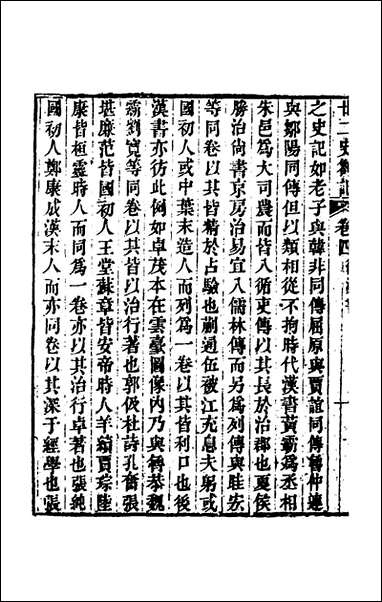 廿二史劄記 卷四 後漢書
之史記如老子與韓非同傳屈原與賈誼同傳魯仲連
與鄒陽同傳但以類相從不拘時代漢書黃霸為丞相
朱邑為大司農而皆入循吏傳以其長於治郡也夏侯
勝治尚書京房治易宜入儒林傳而另為列傳與眭孟
等同卷以其皆精於占驗也蒯通伍被江充息夫躬或
國初人或中葉末造人而列為一卷以其皆利口也後
漢書亦彷此例如卓茂本在雲臺圖像內乃與魯恭魏
霸劉寬等同卷以其皆以治行著也郭伋杜詩孔奮張
堪廉范皆國初人王堂蘇章皆安帝時人羊續賈琮陸
康皆桓靈時人而同為一卷亦以其治行卓著也張純
國初人鄭康成漢末人而亦同卷以其深于經學也張